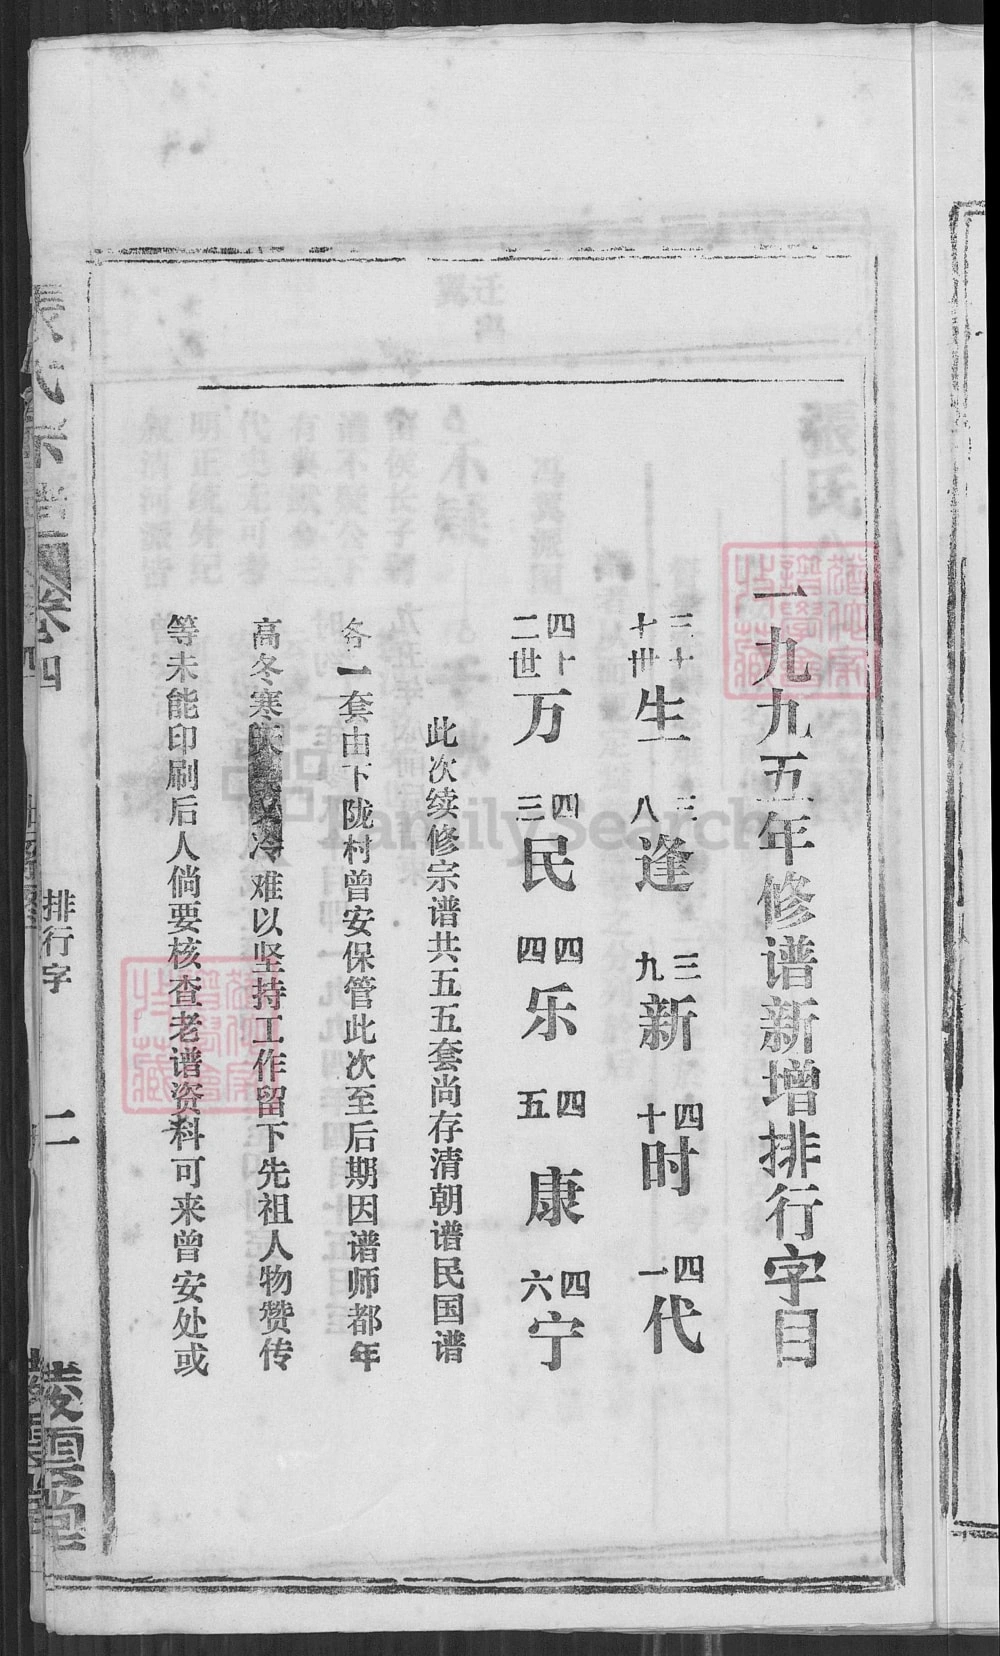 一九九五年修谱新增排行字目
三十十世生 三八逢 三九新 四十时 四一代
四十二世万 四三民 四四乐 四五康 四六宁
此次续修宗谱共五五套尚存清朝谱民国谱
各一套由下陇村曾安保管此次至后期因谱师都年
高冬寒天冷难以坚持工作留下先祖人物赞传
等未能印刷后人倘要核查老谱资料可来曾安处或
張氏宗譜卷四
排行字
二
凌雲堂
FamilySearch